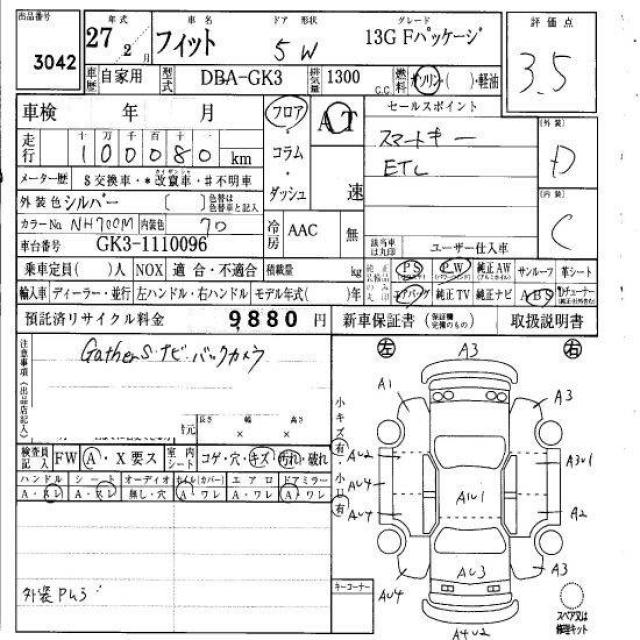 出品番号 3042
年式 27 2月
車名 フィット
ドア 形状 5W
グレード 13G Fパッケージ
評価点 3.5
車歴 自家用
型式 DBA-GK3
排気量 1300 C.C.
燃料 ガソリン・( )・軽油
車検 年 月
フロア・コラム・ダッシュ
AT 速
セールスポイント
スマートキー
ETC
[外装] D
[内装] C
走行 十万千百十
100080 km
メーター歴 $交換車・*改竄車・#不明車
外装色 シルバー ( ) 色替は色替車と記入
カラーNo NH700M 内装色 70
冷房 AAC 無
車台番号 GK3-1110096
該当車は丸印 ユーザー仕入車
乗車定員( )人 NOX 適合・不適合 積載量 kg
PS PW 純正AW サンルーフ 革シート
輸入車 ディーラー・並行 左ハンドル・右ハンドル モデル年式( )年
エアバッグ 純正TV 純正ナビ ABS
預託済リサイクル料金 9880円
新車保証書 (保証欄完備のもの) 取扱説明書
注意事項(出品店記入)
Gathers・ナビ バックカメラ
長さ 幅 高さ
× ×
検査員記入 FW A・X要ス 室内シート コゲ・穴・キズ・汚れ・破れ
ハンドル シート オーディオ エアロ ドアミラー
A・スレ A・スレ 無し・穴 A・ワレ A・ワレ A・ワレ
外装PM3
小キズ有・小凹有
左 右
A3
A1
A3
AU2
A3U1
AU4
AU1
A2
AU4
AU3
AU4
A3
A4U2
キーコーナー
スペア又は修理キット